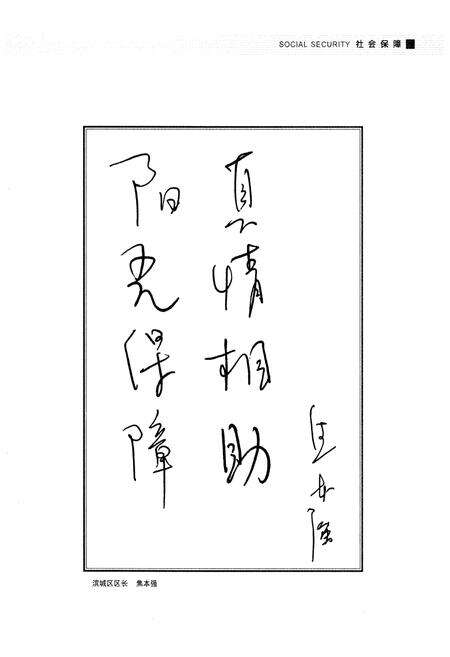 SOCIAL SECURITY 社会保障
阳光保障
真情相助
焦本强
滨城区区长 焦本强